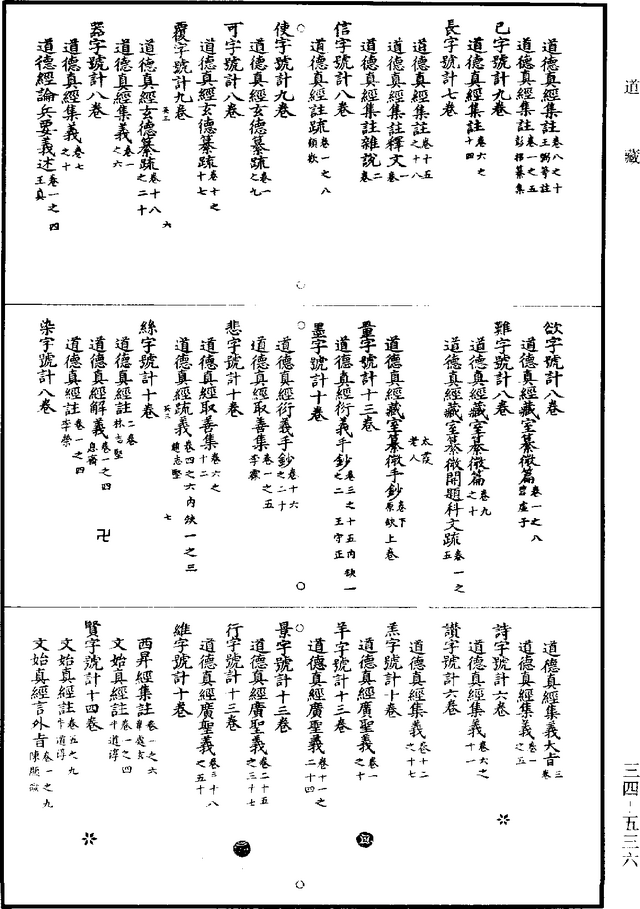 道藏
道德真經集註卷八之十王雱等註
道德真經集註卷一之五彭耜纂集
已字號計九卷
道德真經集註卷六之十四
長字號計七卷
道德真經集註卷十五之十八
道德真經集註釋文卷一
道德真經集註雜說二卷
信字號計八卷
道德真經註疏卷一之八顧歡
使字號計九卷
道德真經玄德纂疏卷一之九
可字號計八卷
道德真經玄德纂疏卷十之十七
覆字號計九卷
道德真經玄德纂疏卷十八之二十
道德真經集義卷一之六
器字號計八卷
道德真經集義卷七之十
道德經論兵要義述卷一之四王真
六
欲字號計八卷
道德真經藏室纂微篇卷一之八碧虛子
難字號計八卷
道德真經藏室纂微篇卷九之十
道德真經藏室纂微開題科文疏卷一之五
道德真經藏室纂微手鈔卷下原缺上卷
太霞老人
量字號計十三卷
道德真經衍義手鈔卷三之十五內缺一之二王守正
墨字號計十卷
道德真經衍義手鈔卷十六之二十
道德真經取善集卷一之五李霖
悲字號計十卷
道德真經取善集卷六之十二
道德真經疏義卷四之六內缺一之三趙志堅
七
絲字號計十卷
道德真經註二卷林志堅
道德真經解義卷一之四息齋
道德真經註卷一之四李榮
染字號計八卷
卍
道德真經集義大旨三卷
道德真經集義卷一之五
詩字號計六卷
道德真經集義卷六之十一
讚字號計六卷
道德真經集義卷十二之十七
羔字號計十卷
道德真經廣聖義卷一之十
羊字號計十三卷
道德真經廣聖義卷十一之二十四
景字號計十三卷
道德真經廣聖義卷二十五之三十七
行字號計十三卷
道德真經廣聖義卷三十八之五十
維字號計十卷
西昇經集註卷一之六
文始真經註卷一之四牛道淳
賢字號計十四卷
文始真經註卷五之九牛道淳
文始真經言外旨卷一之九陳顯微
三四－五三六